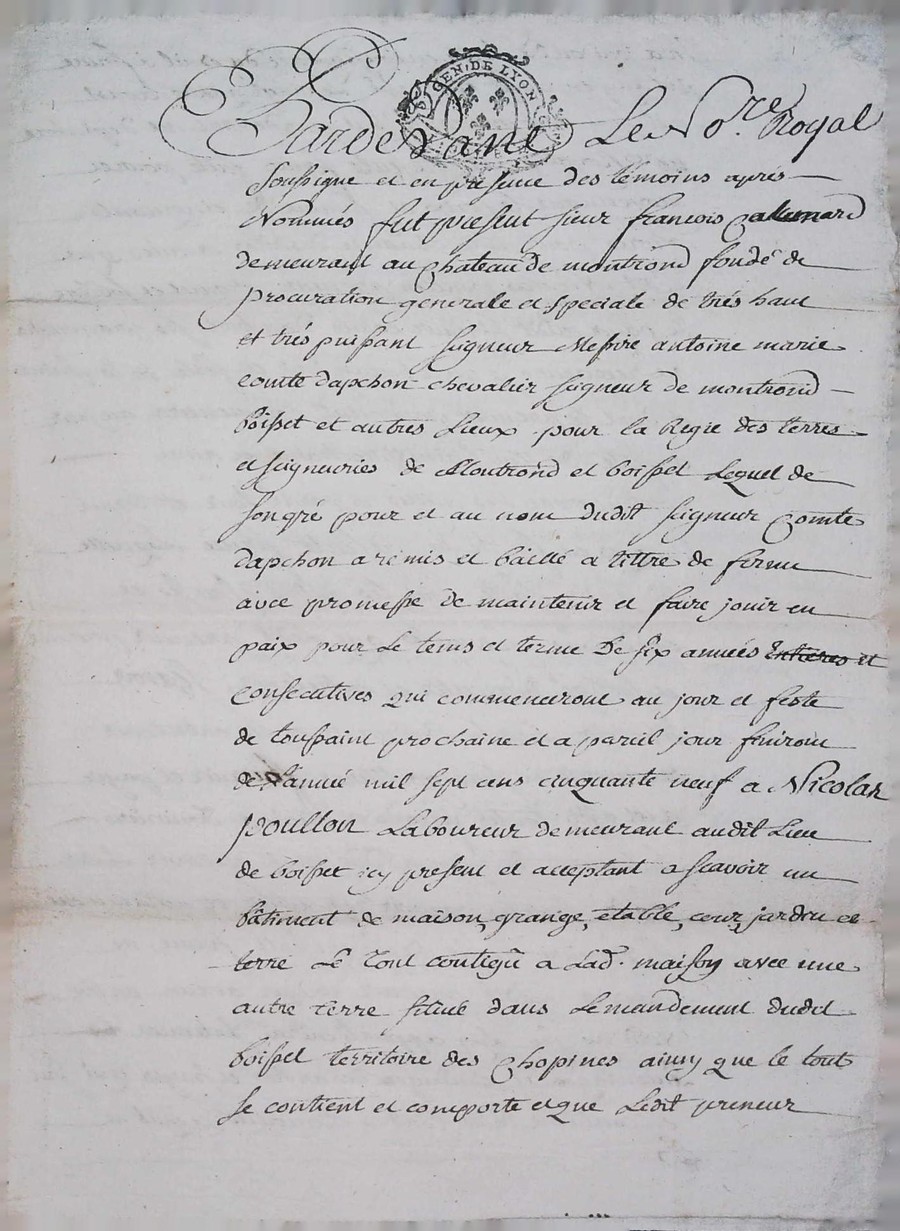 GEN. DE LYON
Pardevant Le No.re Royal
soussigne et en presence des témoins après
Nommés fut present sieur françois
demeurant au Chateau de montrond fondé de
procuration generale et speciale de trés haut
et trés puissant seigneur Messire antoine marie
comte dapchon chevalier seigneur de montrond
boisset et autres Lieux pour la Regie des terres
et seigneuries de Montrond et boisset Lequel de
son gré pour et au nom dudit seigneur Comte
dapchon a remis et baillé a tittre de ferme
avec promesse de maintenir et faire jouir en
paix pour Le tems et terme De six années Entieres et
consecutives qui commenceront au jour et feste
de toussaint prochaine et a pareil jour finiront
de L'année mil sept cens cinquante neuf a Nicolas
poullon Laboureur demeurant audit Lieu
de boisset icy present et acceptant a scavoir un
bâtiment de maison, grange, étable, cour, jardin et
terre Le Tout contigû a Lad. maison avec une
autre terre située dans Le mandement dudit
boisset territoire des Chopines ainsy que le tout
se contient et comporte et que Ledit preneur